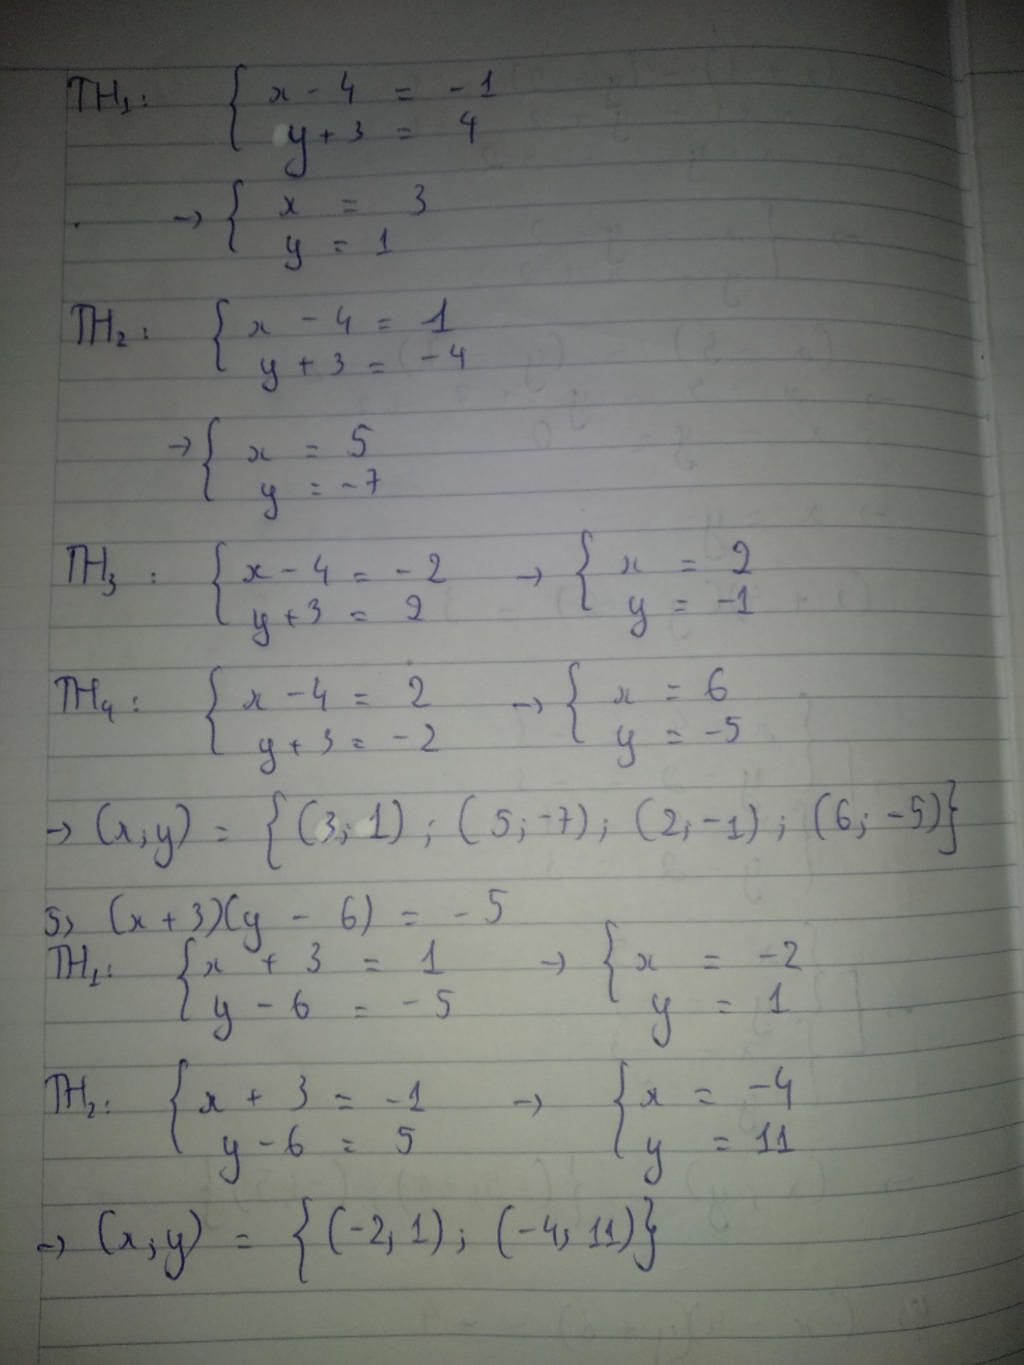 TH₁: { x - 4 = -1
y + 3 = 4
→ { x = 3
y = 1
TH₂: { x - 4 = 1
y + 3 = -4
→ { x = 5
y = -7
TH₃: { x - 4 = -2 → { x = 2
y + 3 = 2 y = -1
TH₄: { x - 4 = 2 → { x = 6
y + 3 = -2 y = -5
→ (x; y) = {(3; 1); (5; -7); (2; -1); (6; -5)}
5, (x + 3)(y - 6) = -5
TH₁: { x + 3 = 1 → { x = -2
y - 6 = -5 y = 1
TH₂: { x + 3 = -1 → { x = -4
y - 6 = 5 y = 11
→ (x; y) = {(-2; 1); (-4; 11)}